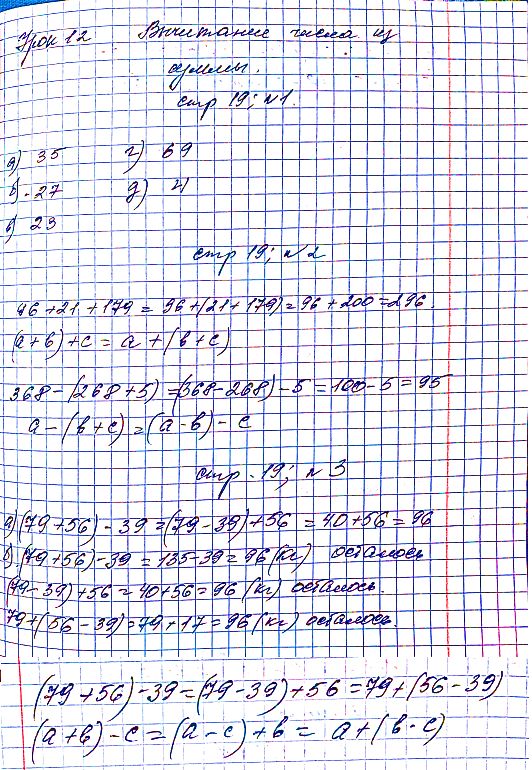 Урок 12 Вычитание числа из
суммы.
стр 19; №1.
а) 35 г) 69
б) 27 д) 4
в) 23
стр 19; №2
96+21+179 = 96+(21+179)=96+200=296.
(а+в)+с = а+(в+с)
368-(268+5)=(368-268)-5=100-5=95
а-(в+с)=(а-в)-с
стр. 19; №3
а) (79+56)-39=(79-39)+56=40+56=96
б) (79+56)-39=135-39=96(кг) осталось
(79-39)+56=40+56=96(кг) осталось.
79+(56-39)=79+17=96(кг) осталось.
(79+56)-39=(79-39)+56=79+(56-39)
(а+в)-с=(а-с)+в= а+(в-с)